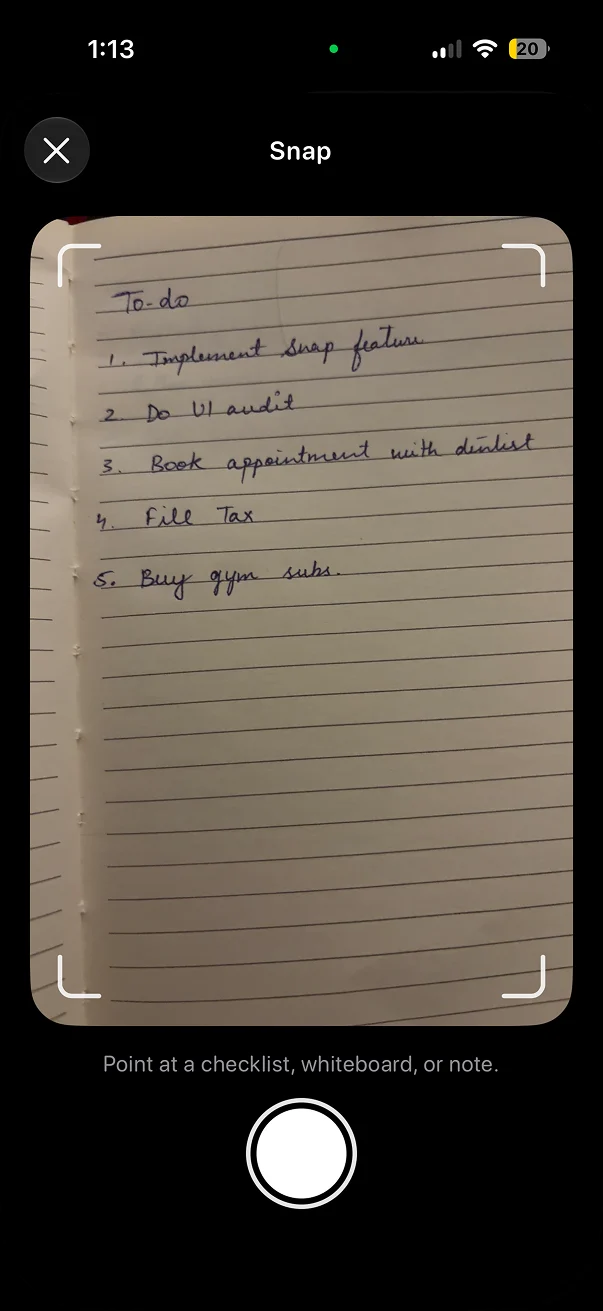 1:13
20
Snap
To-do
1. Implement Snap feature
2. Do UI audit
3. Book appointment with dentist
4. Fill Tax
5. Buy gym subs.
Point at a checklist, whiteboard, or note.